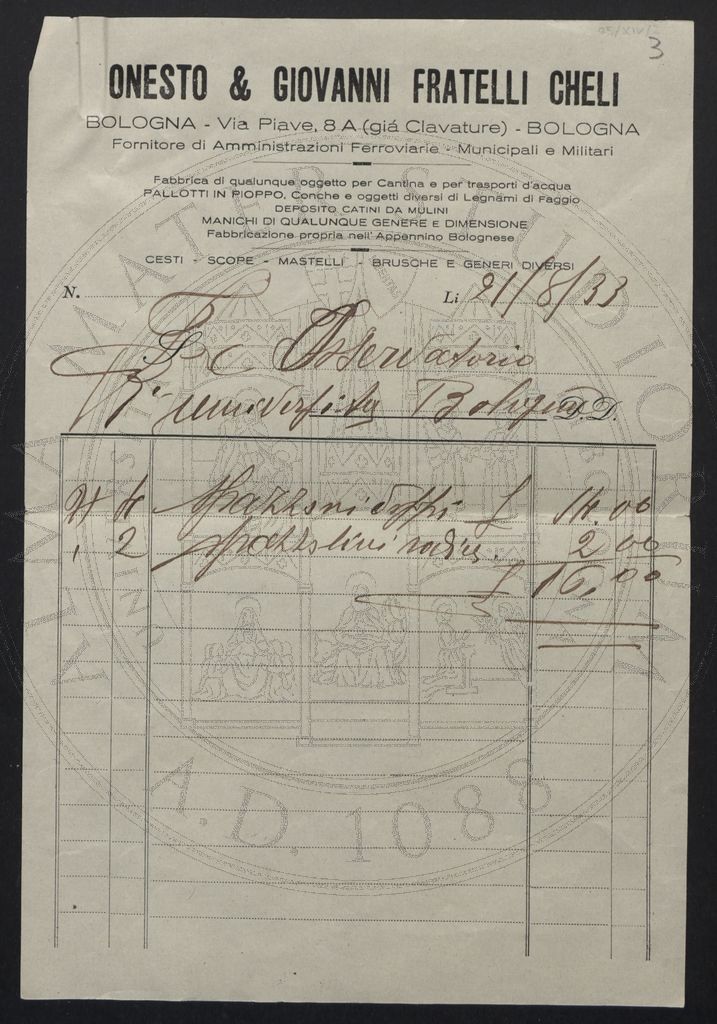 3
ONESTO & GIOVANNI FRATELLI CHELI
BOLOGNA - Via Piave, 8 A (giá Clavature) - BOLOGNA
Fornitore di Amministrazioni Ferroviarie - Municipali e Militari
Fabbrica di qualunque oggetto per Cantina e per trasporti d'acqua
PALLOTTI IN PIOPPO, Conche e oggetti diversi di Legnami di Faggio
DEPOSITO CATINI DA MULINI
MANICHI DI QUALUNQUE GENERE E DIMENSIONE
Fabbricazione propria nell'Appennino Bolognese
CESTI - SCOPE - MASTELLI - BRUSCHE E GENERI DIVERSI
N. Li 21/8/33
Osservatorio
Bologna D. D.
14.00
2 spazzolini 2 00
16.00
ALMA MATER STUDIORUM
A.D. 1088